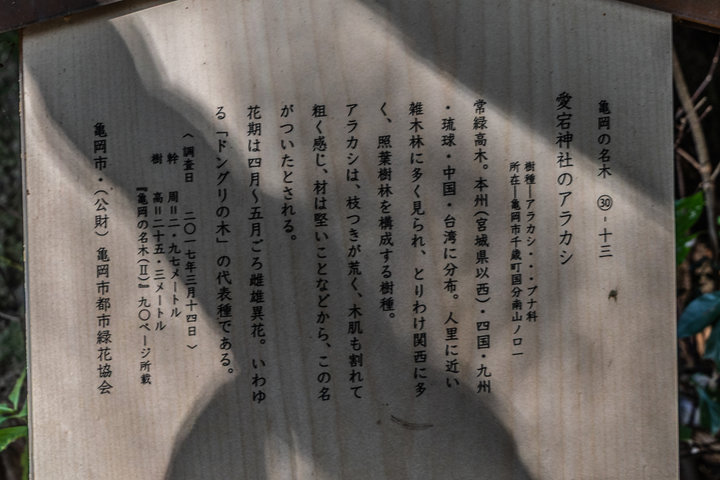 亀岡の名木　㉚-十三
愛宕神社のアラカシ
樹種―アラカシ・・・ブナ科
所在―亀岡市千歳町国分南山ノ口一
常緑高木。本州(宮城県以西)・四国・九州
・琉球・中国・台湾に分布。人里に近い
雑木林に多く見られ、とりわけ関西に多
く、照葉樹林を構成する樹種。
アラカシは、枝つきが荒く、木肌も割れて
粗く感じ、材は堅いことなどから、この名
がついたとされる。
花期は四月～五月ごろ雌雄異花。いわゆ
る「ドングリの木」の代表種である。
〈調査日　二〇一七年三月十四日〉
幹　周＝二・九七メートル
樹　高＝二十五・三メートル
『亀岡の名木(Ⅱ)』九〇ページ所載
亀岡市・(公財)亀岡市都市緑花協会